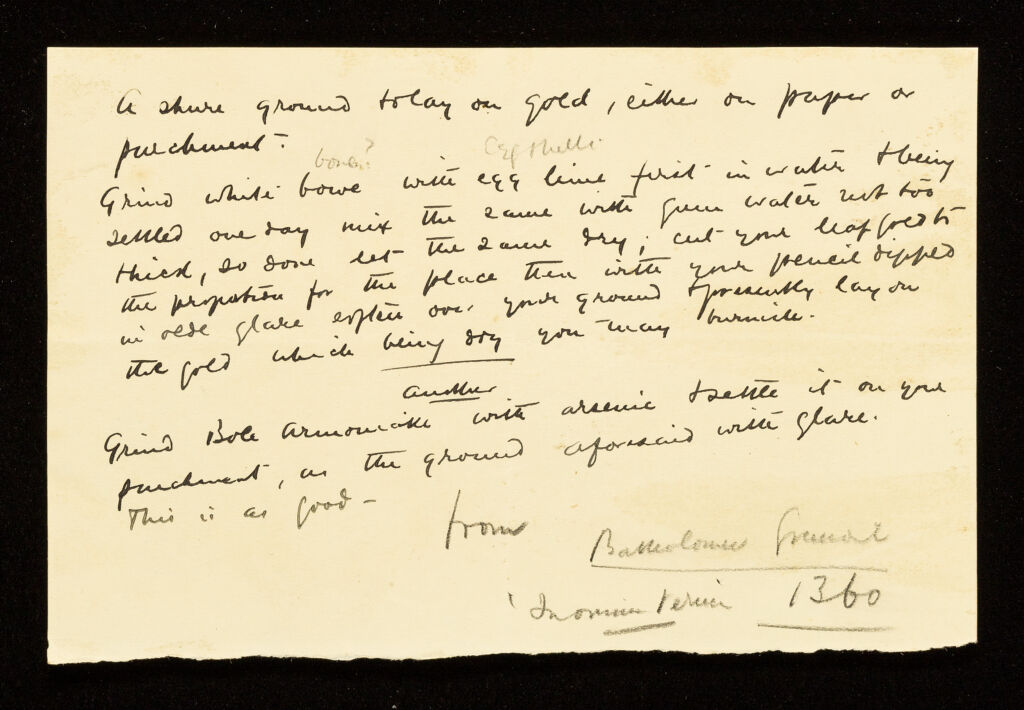 A shure ground to lay on gold, either on paper or
parchment.
bone? Egg shells.
Grind white bowe with egg lime first in water & being
settled one day mix the same with gum water not too
thick, so done let the same dry; cut your leaf gold to
the propotion for the place then with your pencil dipped
in olde glare over your ground & presently lay on
the gold which being dry you may burnish.
another
Grind Bole Armoniake with arsenic & settle it on your
parchment, as the ground aforesaid with glare.
This is as good -
from
Bartholomew
1360